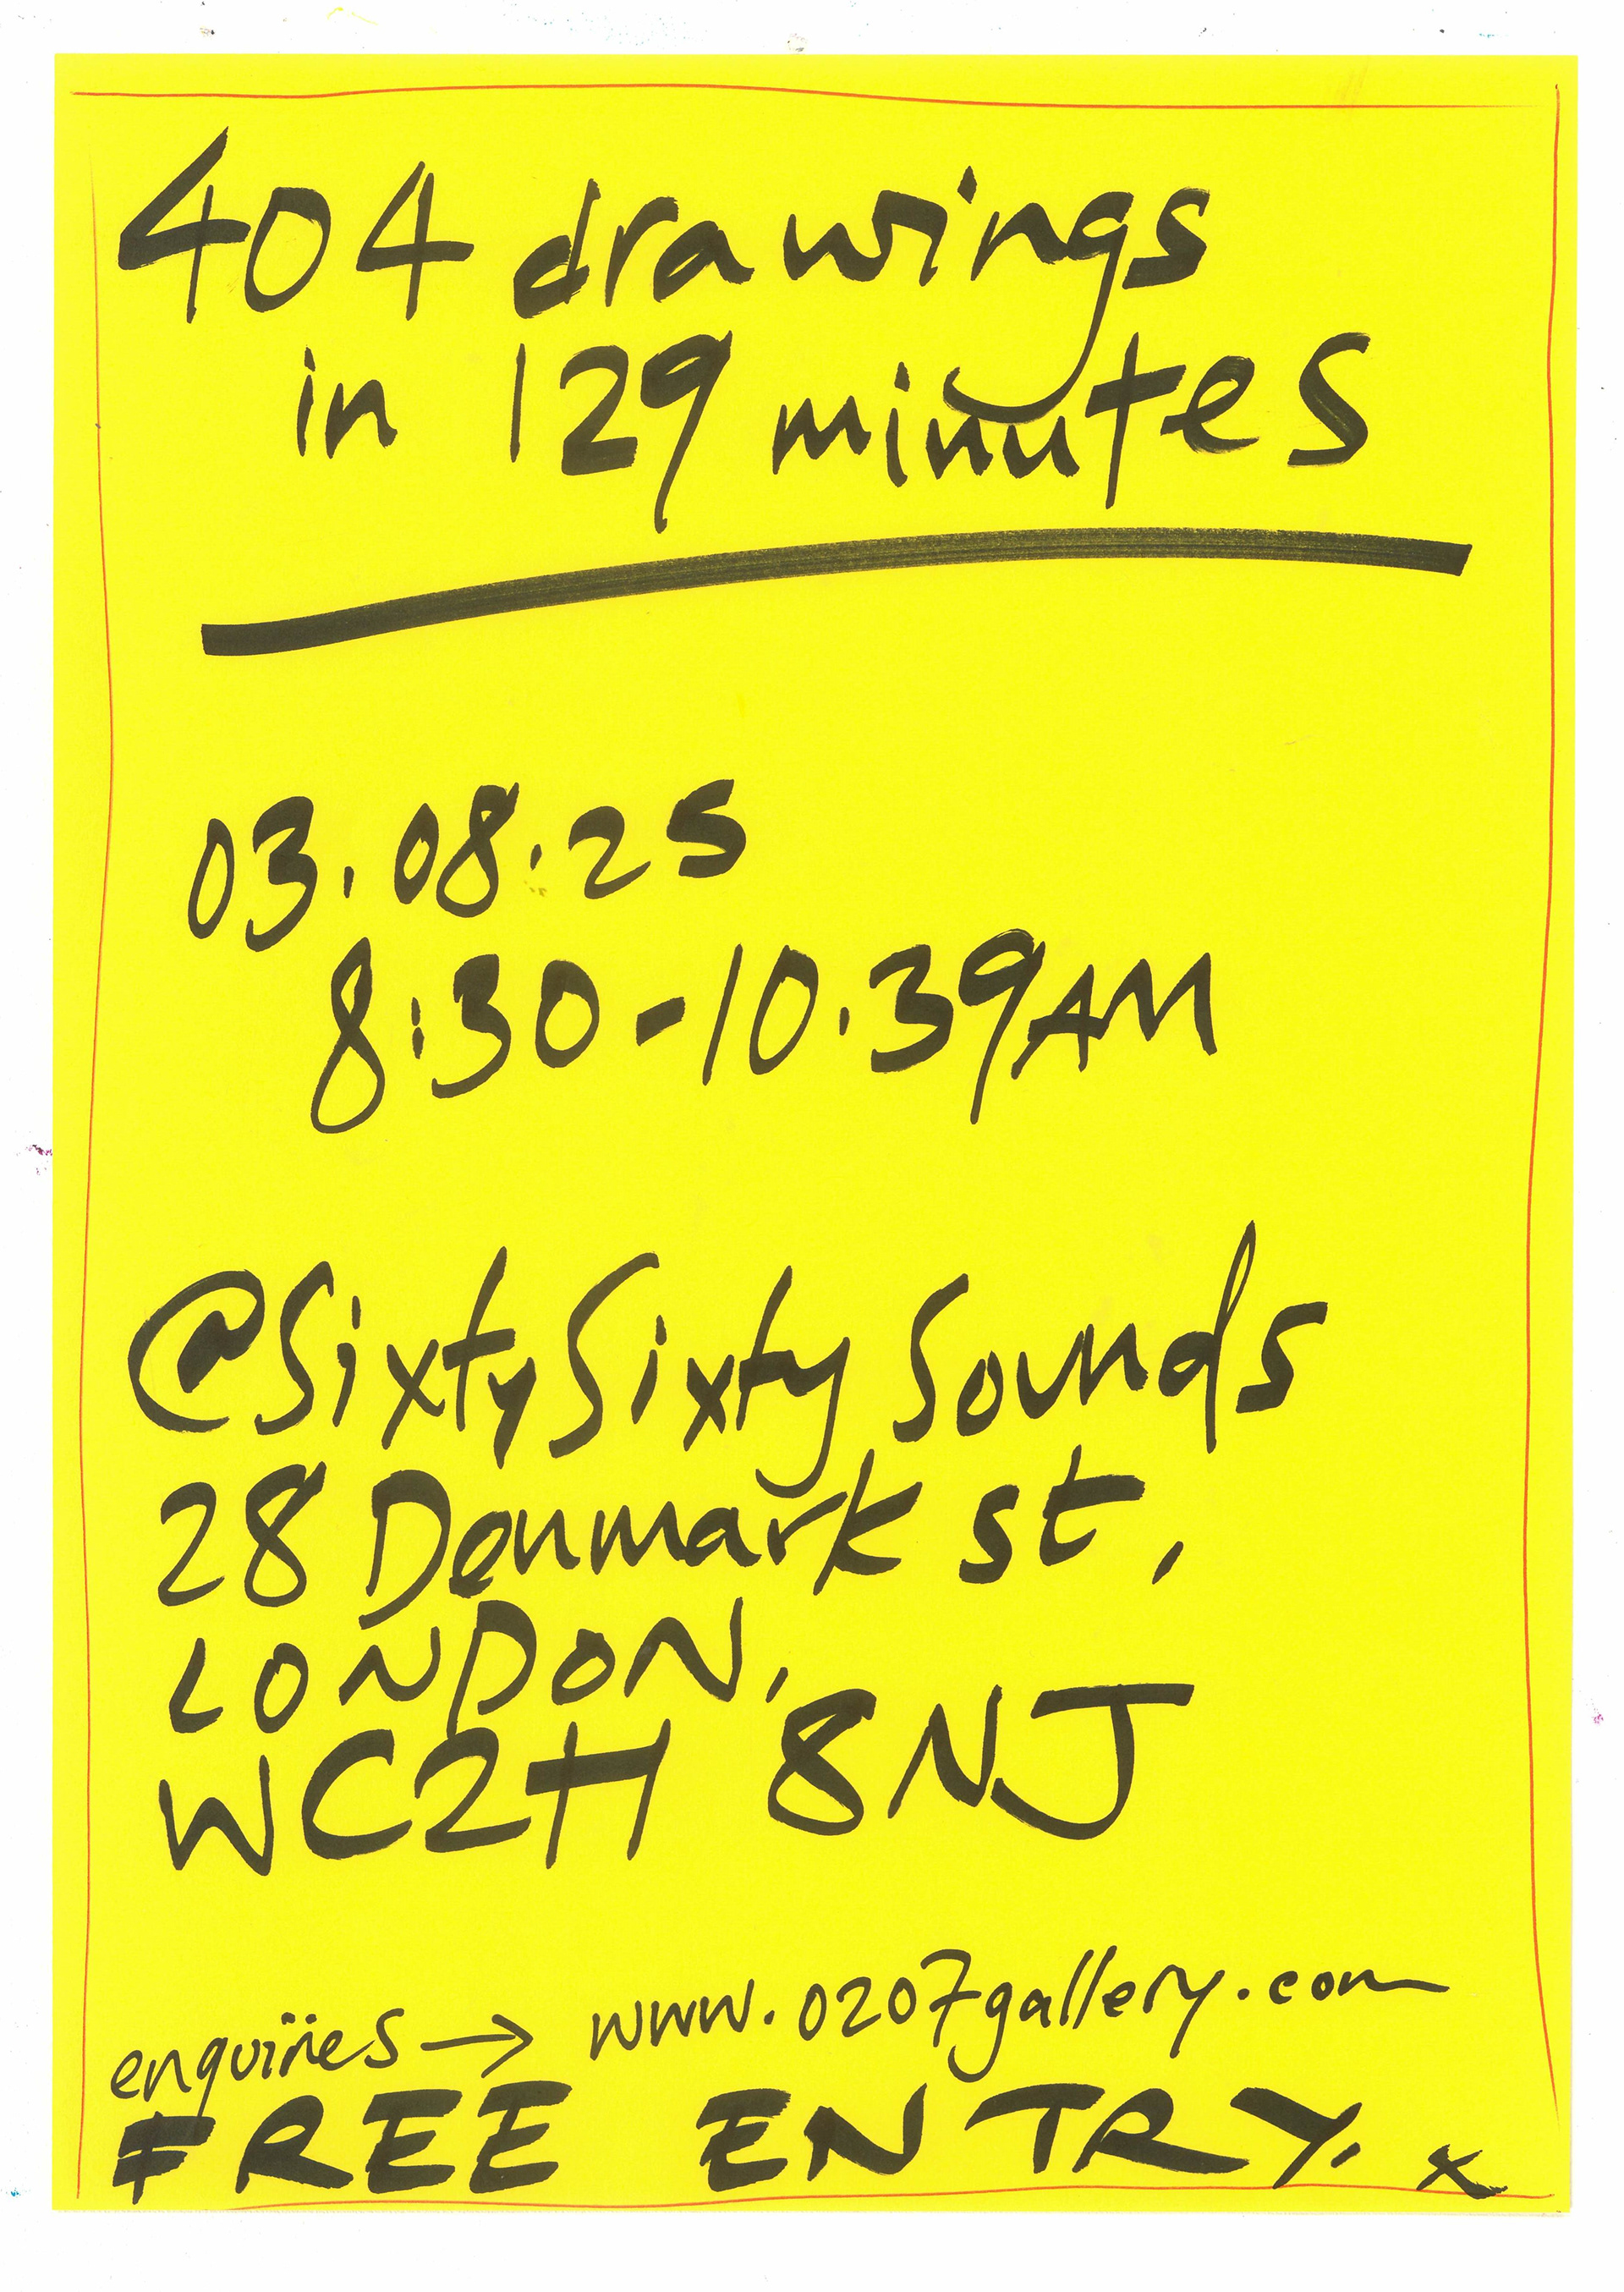 404 drawings
in 129 minutes
03.08.25
8:30-10.39AM
@SixtySixty Sounds
28 Denmark st,
LONDON,
WC2H 8NJ
enquiries → www.0207gallery.com
FREE ENTRY. x